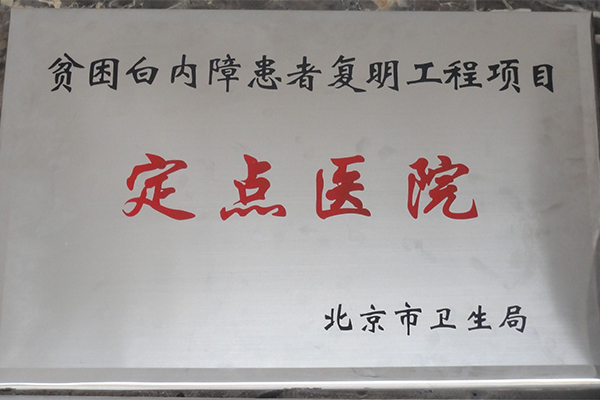 贫困白内障患者复明工程项目
定点医院
北京市卫生局